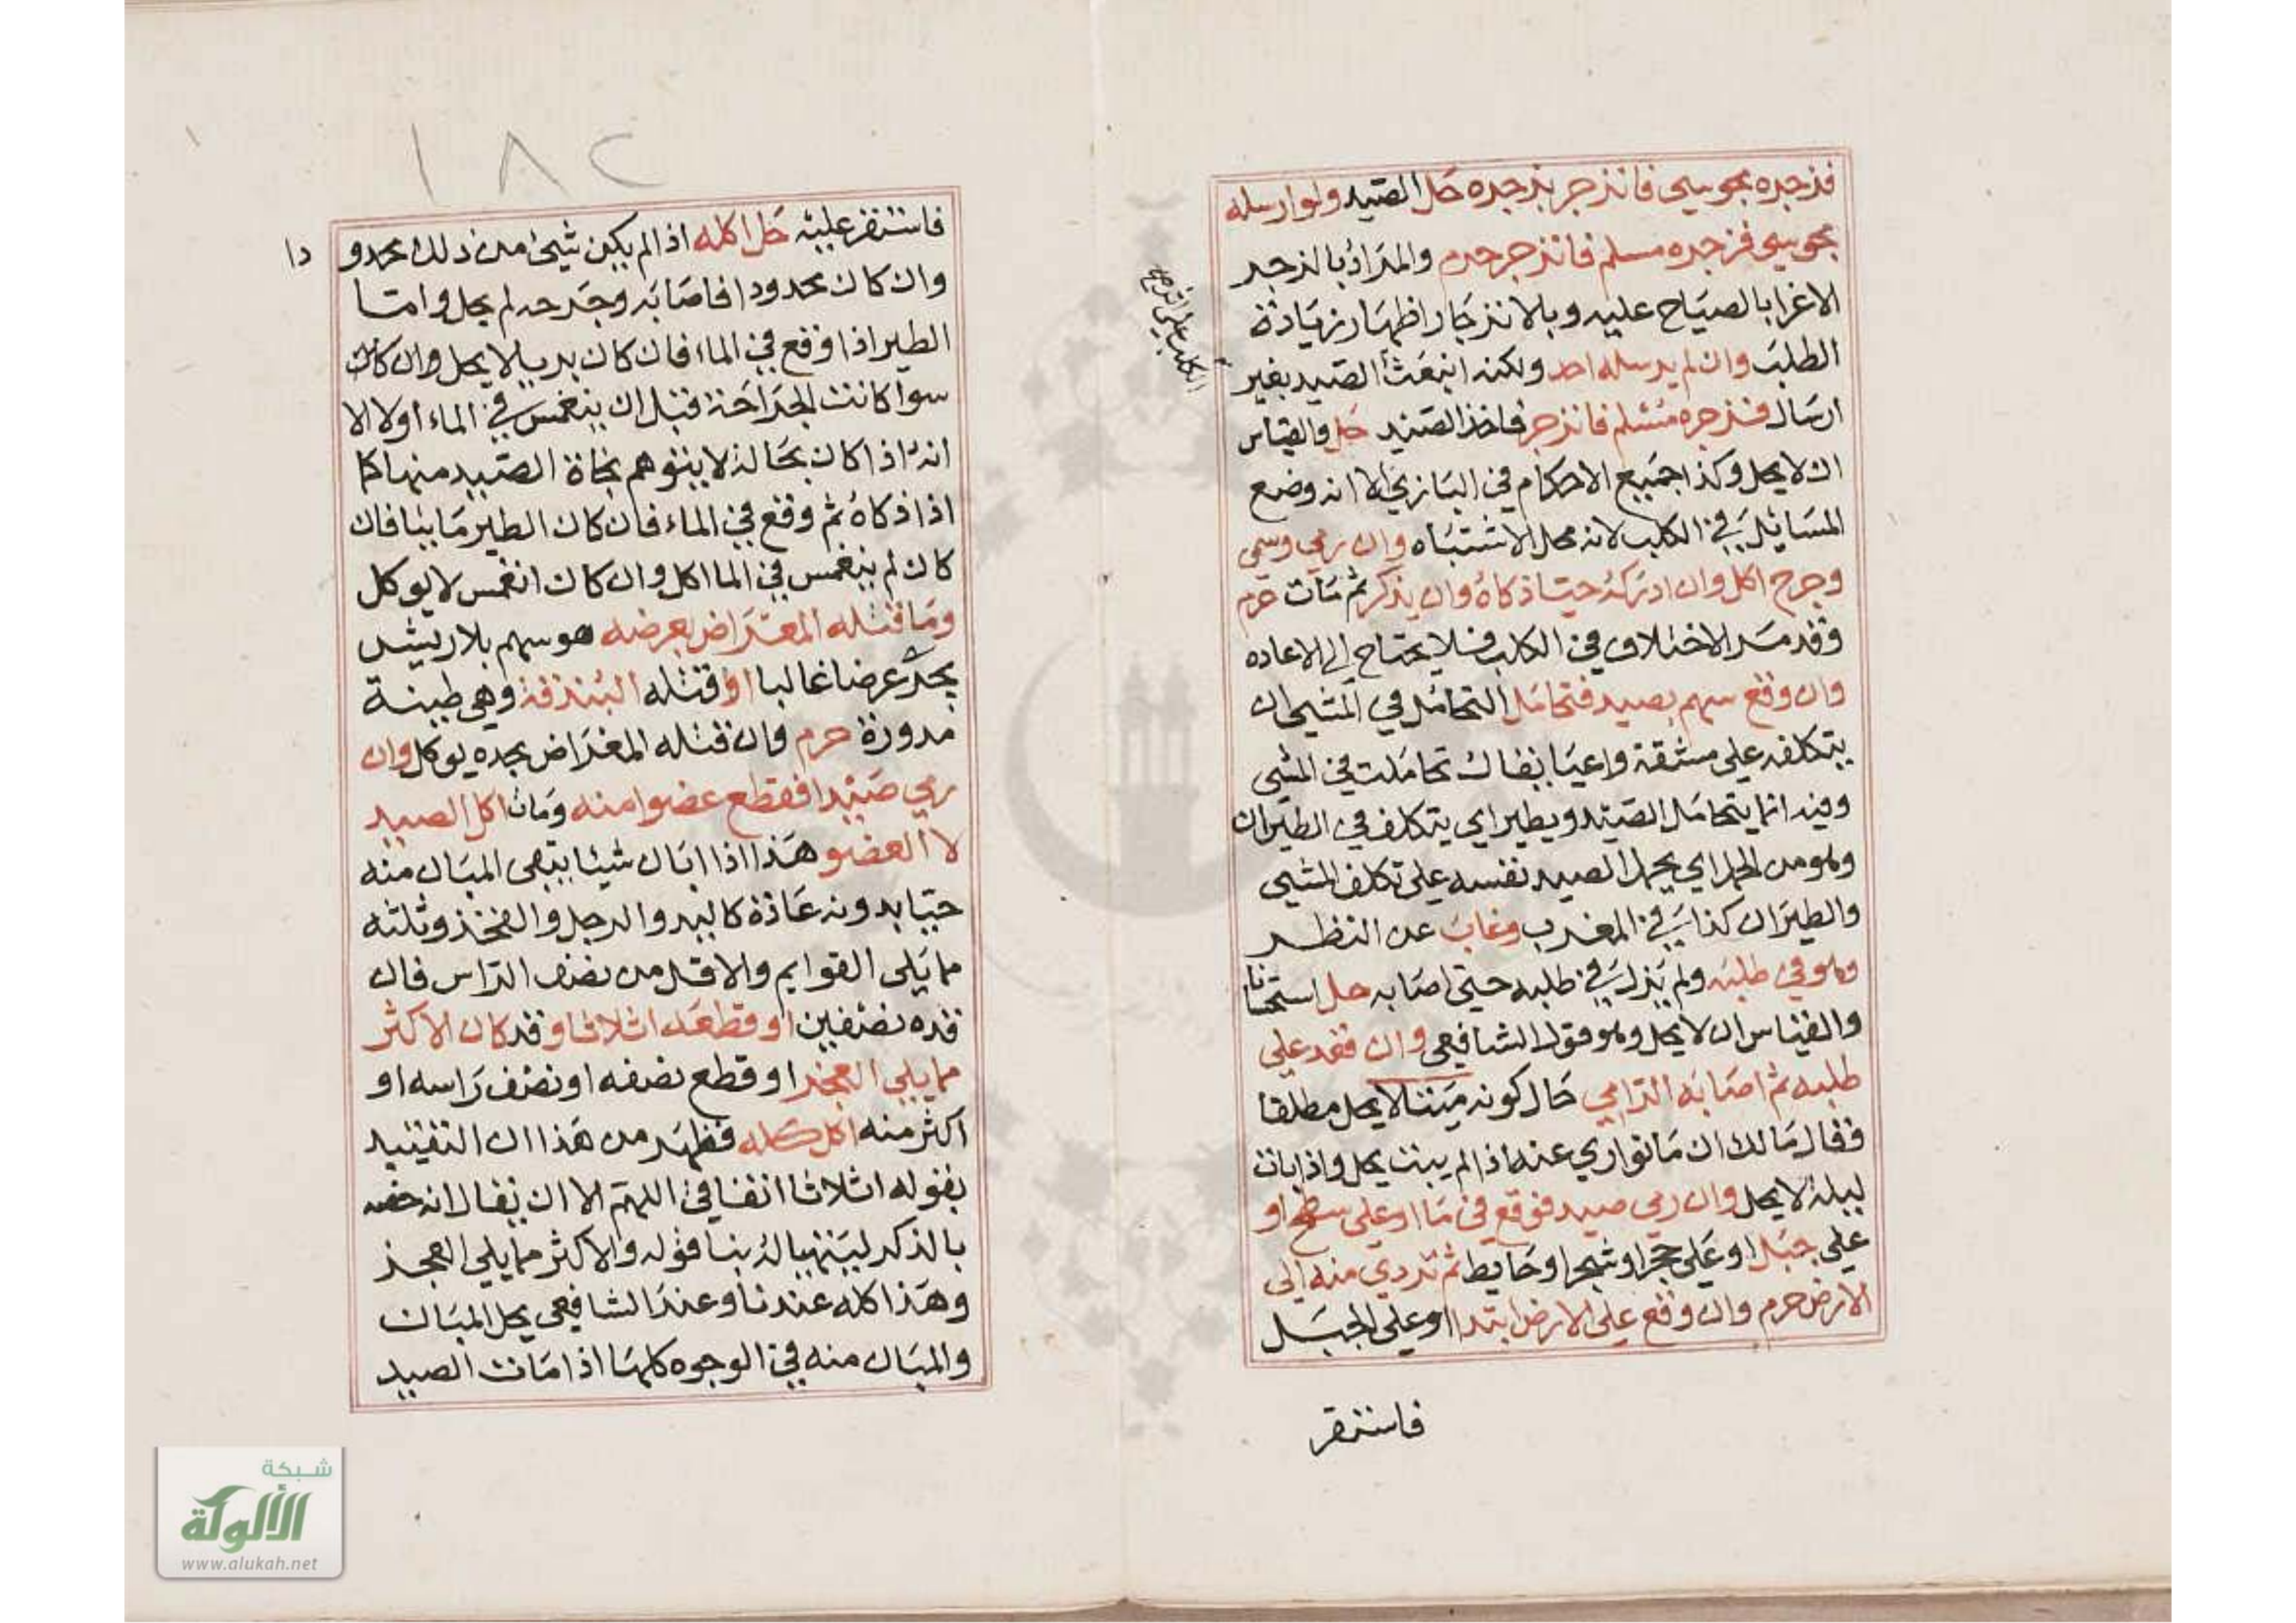 فزجره مجوسي فانزجر بزجره حل الصيد ولو ارسله
مجوسي فزجره مسلم فانزجر حرم والمراد بالزجر
الاغرا بالصياح عليه وبالانزجار اظهار زيادة
الطلب وان لم يرسله احد ولكنه انبعث الصيد بغير
ارسال فزجره مسلم فانزجر فاخذ الصيد حل والقياس
ان لا يحل وكذا جميع الاحكام في البازي الا انه وضع
المسائل في الكلب لانه محل الاشتباه وان رمي وسمي
وجرح اكل وان ادركه حيا ذكاه وان يذكر ثم مات حرم
وقد مر الاختلاف في الكلب فلا يحتاج الي الاعاده
وان وقع سهم بصيد فتحامل التحامل في المشي ان
يتكلفه علي مشقة واعيا يقال تحاملت في المشي
وفيه انما يتحامل الصيد ويطير اي يتكلف في الطيران
وهو من الحمل اي يحمل الصيد نفسه علي تكلف المشي
والطيران كذا في المغرب وغاب عن النظر
وهو في طلبه ولم يزل في طلبه حتي اصابه حل استحسانا
والقياس ان لا يحل وهو قول الشافعي وان فقد علي
طلبه ثم اصابه الرامي حال كونه ميتا لا يحل مطلقا
فقال مالك ان ما تواري عنه اذا لم يبت يحل واذا بات
ليلة لا يحل وان رمي صيد فوقع في ما او علي سطح او
علي جبل او علي حجر او شجر او حايط ثم تردي منه الي
الارض حرم وان وقع علي الارض ابتدا او علي الجبل
فاستقر
الكلب علي
فاستقر عليه حل اكله اذا لم يكن شيئ من ذلك محدو دا
وان كان محدودا فاصابه وجرحه لم يحل واما
الطير اذا وقع في الماء فان كان بريا لا يحل وان كان
سوا كانت الجراحة قبل ان ينغمس في الماء او لا الا
انه اذا كان بحالة لا يتوهم نجاة الصيد منها كما
اذا ذكاه ثم وقع في الماء فان كان الطير مايئا فان
كان لم ينغمس في الما اكل وان كان انغمس لا يوكل
وما قتله المعراض بعرضه هو سهم بلا ريش
يجر عرضا غالبا او قتله البندقة وهي طينة
مدورة حرم وان قتله المعراض بحده يوكل وان
رمي صيدا فقطع عضوا منه ومات اكل الصيد
لا العضو هذا اذا ابان شيئا يبقي المبان منه
حيا بدونه عادة كاليد والرجل والفخذ وثلثه
مما يلي القوايم والاقل من نصف الراس فان
قده نصفين او قطعه اثلاثا وقد كان الاكثر
مما يلي العجز او قطع نصفه او نصف راسه او
اكثر منه اكل كله فظهر من هذا ان التقييد
بقوله اثلاثا اتفاقي اللهم الا ان يقال انه خصه
بالذكر ليتنهيا له بنا قوله والاكثر مما يلي العجز
وهذا كله عندنا وعند الشافعي يحل المبان
والمبان منه في الوجوه كلها اذا مات الصيد
١٨٢
شبكة
الألوكة
www.alukah.net